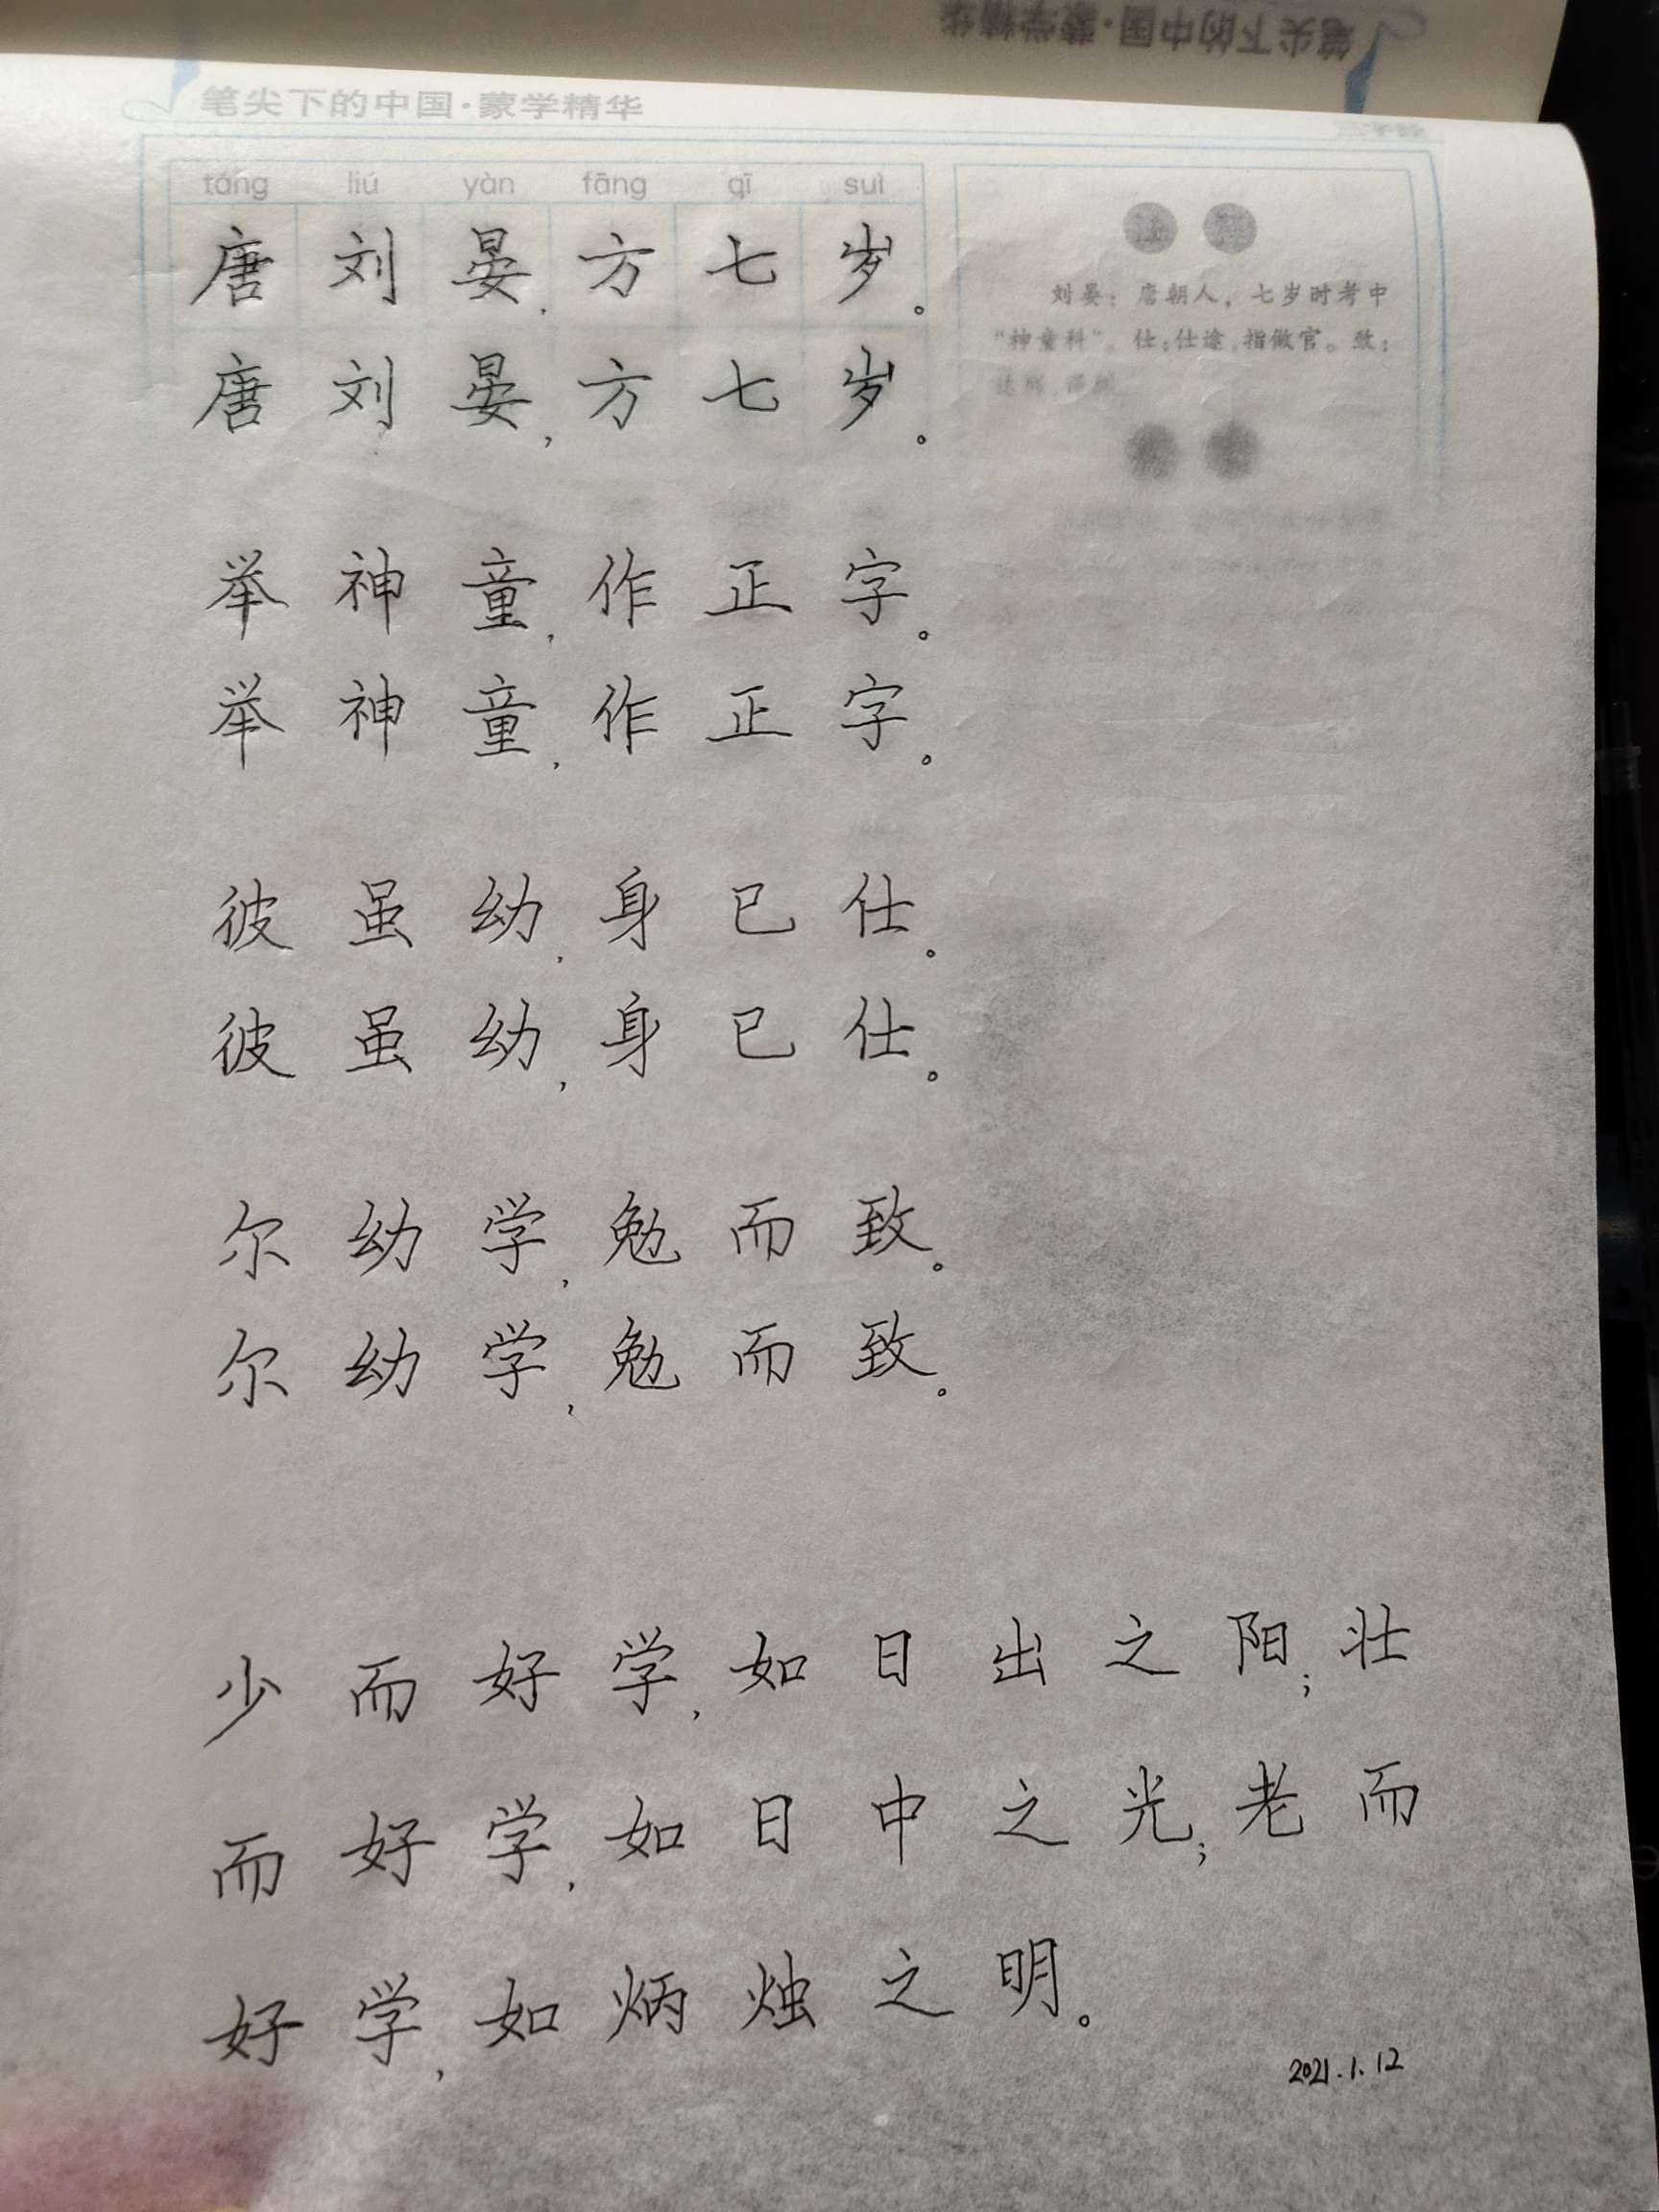 笔尖下的中国·蒙学精华
笔尖下的中国·蒙学精华
táng liú yàn fāng qī suì
唐刘晏,方七岁。
唐刘晏,方七岁。
举神童,作正字。
举神童,作正字。
彼虽幼,身已仕。
彼虽幼,身已仕。
尔幼学,勉而致。
尔幼学,勉而致。
少而好学,如日出之阳;壮
而好学,如日中之光;老而
好学,如炳烛之明。
2021.1.12
注释
刘晏:唐朝人,七岁时考中
“神童科”。仕:仕途,指做官。致: